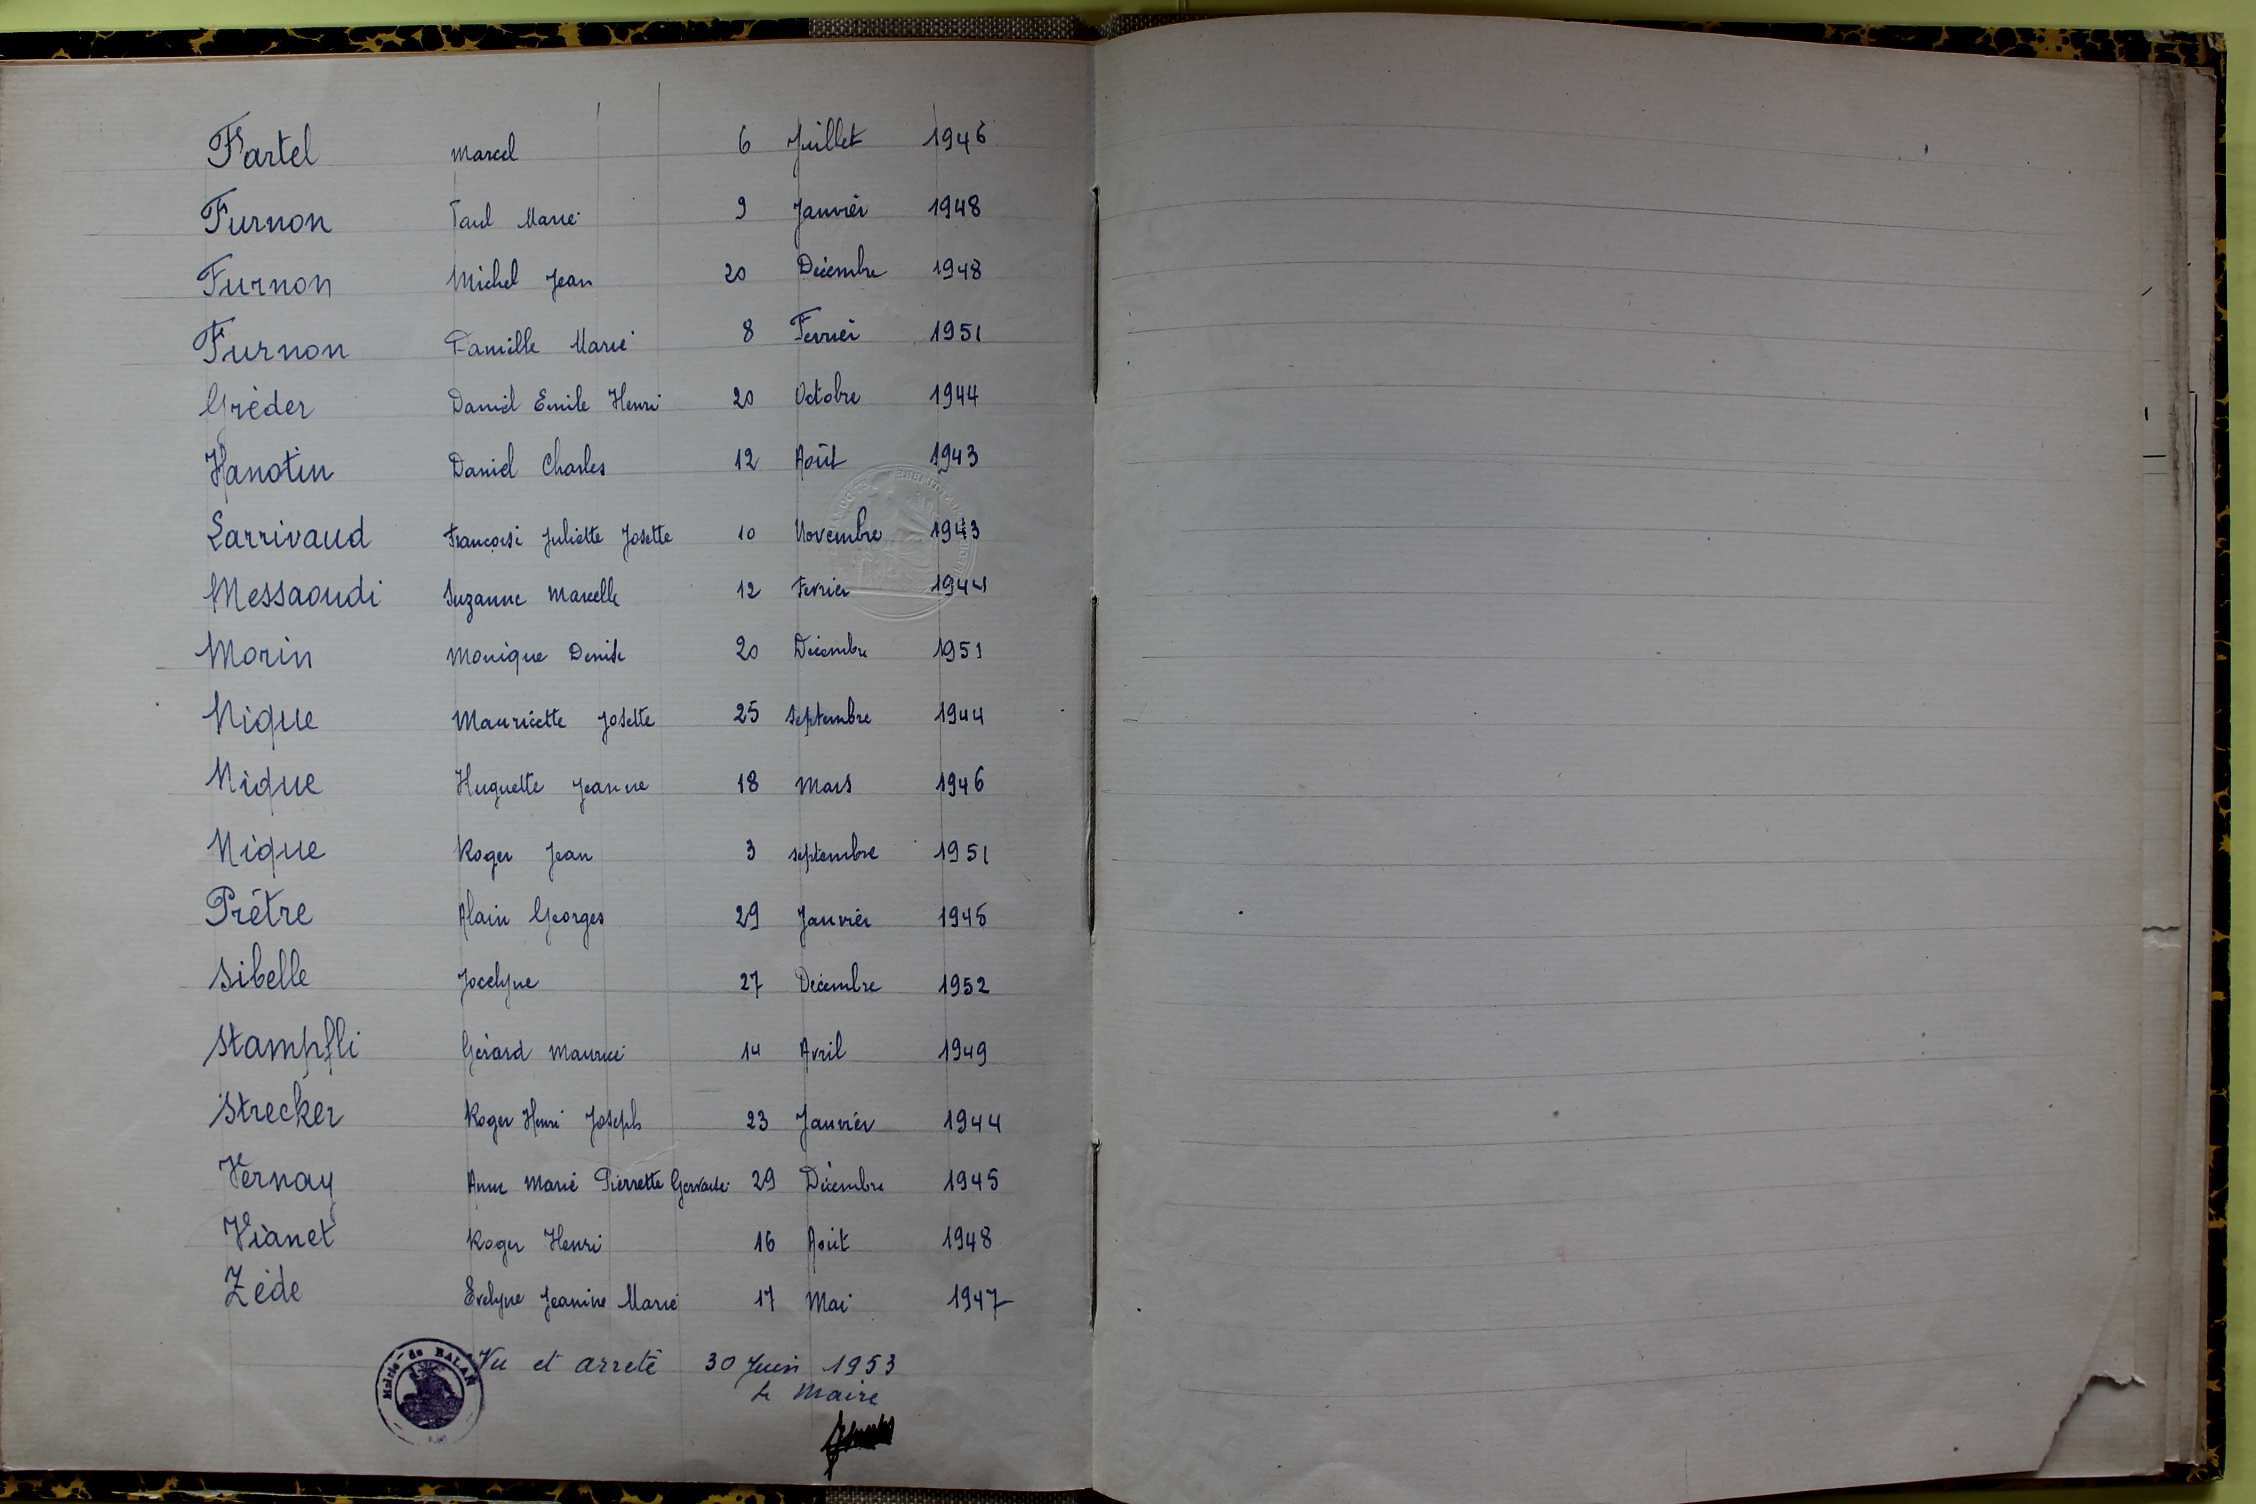 Fartel Marcel 6 Juillet 1946
Furnon Paul Marie 9 Janvier 1948
Furnon Michel Jean 20 Décembre 1948
Furnon Camille Marie 8 Fevrier 1951
Gréder Daniel Emile Henri 20 Octobre 1944
Hanotin Daniel Charles 12 Août 1943
Larrivaud Françoise Juliette Josette 10 Novembre 1943
Messaoudi Suzanne Marcelle 12 Fevrier 1944
Morin Monique Denise 20 Décembre 1951
Nique Mauricette Josette 25 Septembre 1944
Nique Huguette Jeanne 18 Mars 1946
Nique Roger Jean 3 septembre 1951
Prêtre Alain Georges 29 Janvier 1945
Sibelle Jocelyne 27 Décembre 1952
Stampfli Gérard Maurice 14 Avril 1949
Strecker Roger Henri Joseph 23 Janvier 1944
Vernay Anne Marie Pierrette 29 Décembre 1945
Vianet Roger Henri 16 Août 1948
Zéde Evelyne Jeanine Marie 17 Mai 1947
Mairie de BALAN
Vu et arreté 30 Juin 1953
Le Maire